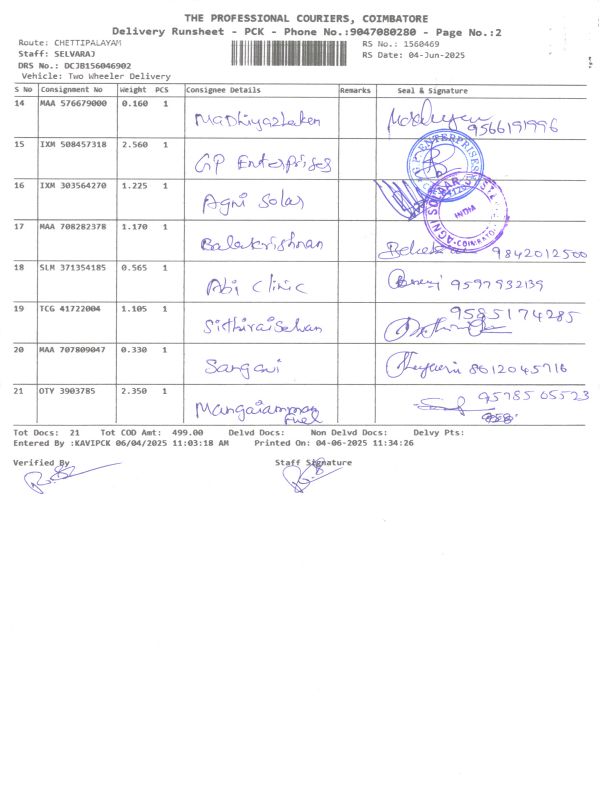 THE PROFESSIONAL COURIERS, COIMBATORE
Delivery Runsheet - PCK - Phone No.:9047080280 - Page No.:2
Route: CHETTIPALAYAM RS No.: 1560469
Staff: SELVARAJ RS Date: 04-Jun-2025
DRS No.: DCJB156046902
Vehicle: Two Wheeler Delivery
S No Consignment No Weight PCS Consignee Details Remarks Seal & Signature
14 MAA 576679000 0.160 1
Madhiyazhaken 9566191996
15 IXM 508457318 2.560 1
GP Enterprises ENTERPRISES
16 IXM 303564270 1.225 1
Agni Solar AGNI SOLAR INDIA
17 MAA 708282378 1.170 1
Balakrishnan 9842012500
18 SLM 371354185 0.565 1
Abi Clinic 9597932139
19 TCG 41722004 1.105 1 9585174285
Sidthiraiselvan
20 MAA 707809047 0.330 1
Sangavi 8012045716
21 OTY 3903785 2.350 1
Mangaiamman
Fuel
Tot Docs: 21 Tot COD Amt: 499.00 Delvd Docs: Non Delvd Docs: Delvy Pts:
Entered By :KAVIPCK 06/04/2025 11:03:18 AM Printed On: 04-06-2025 11:34:26
Verified By Staff Signature